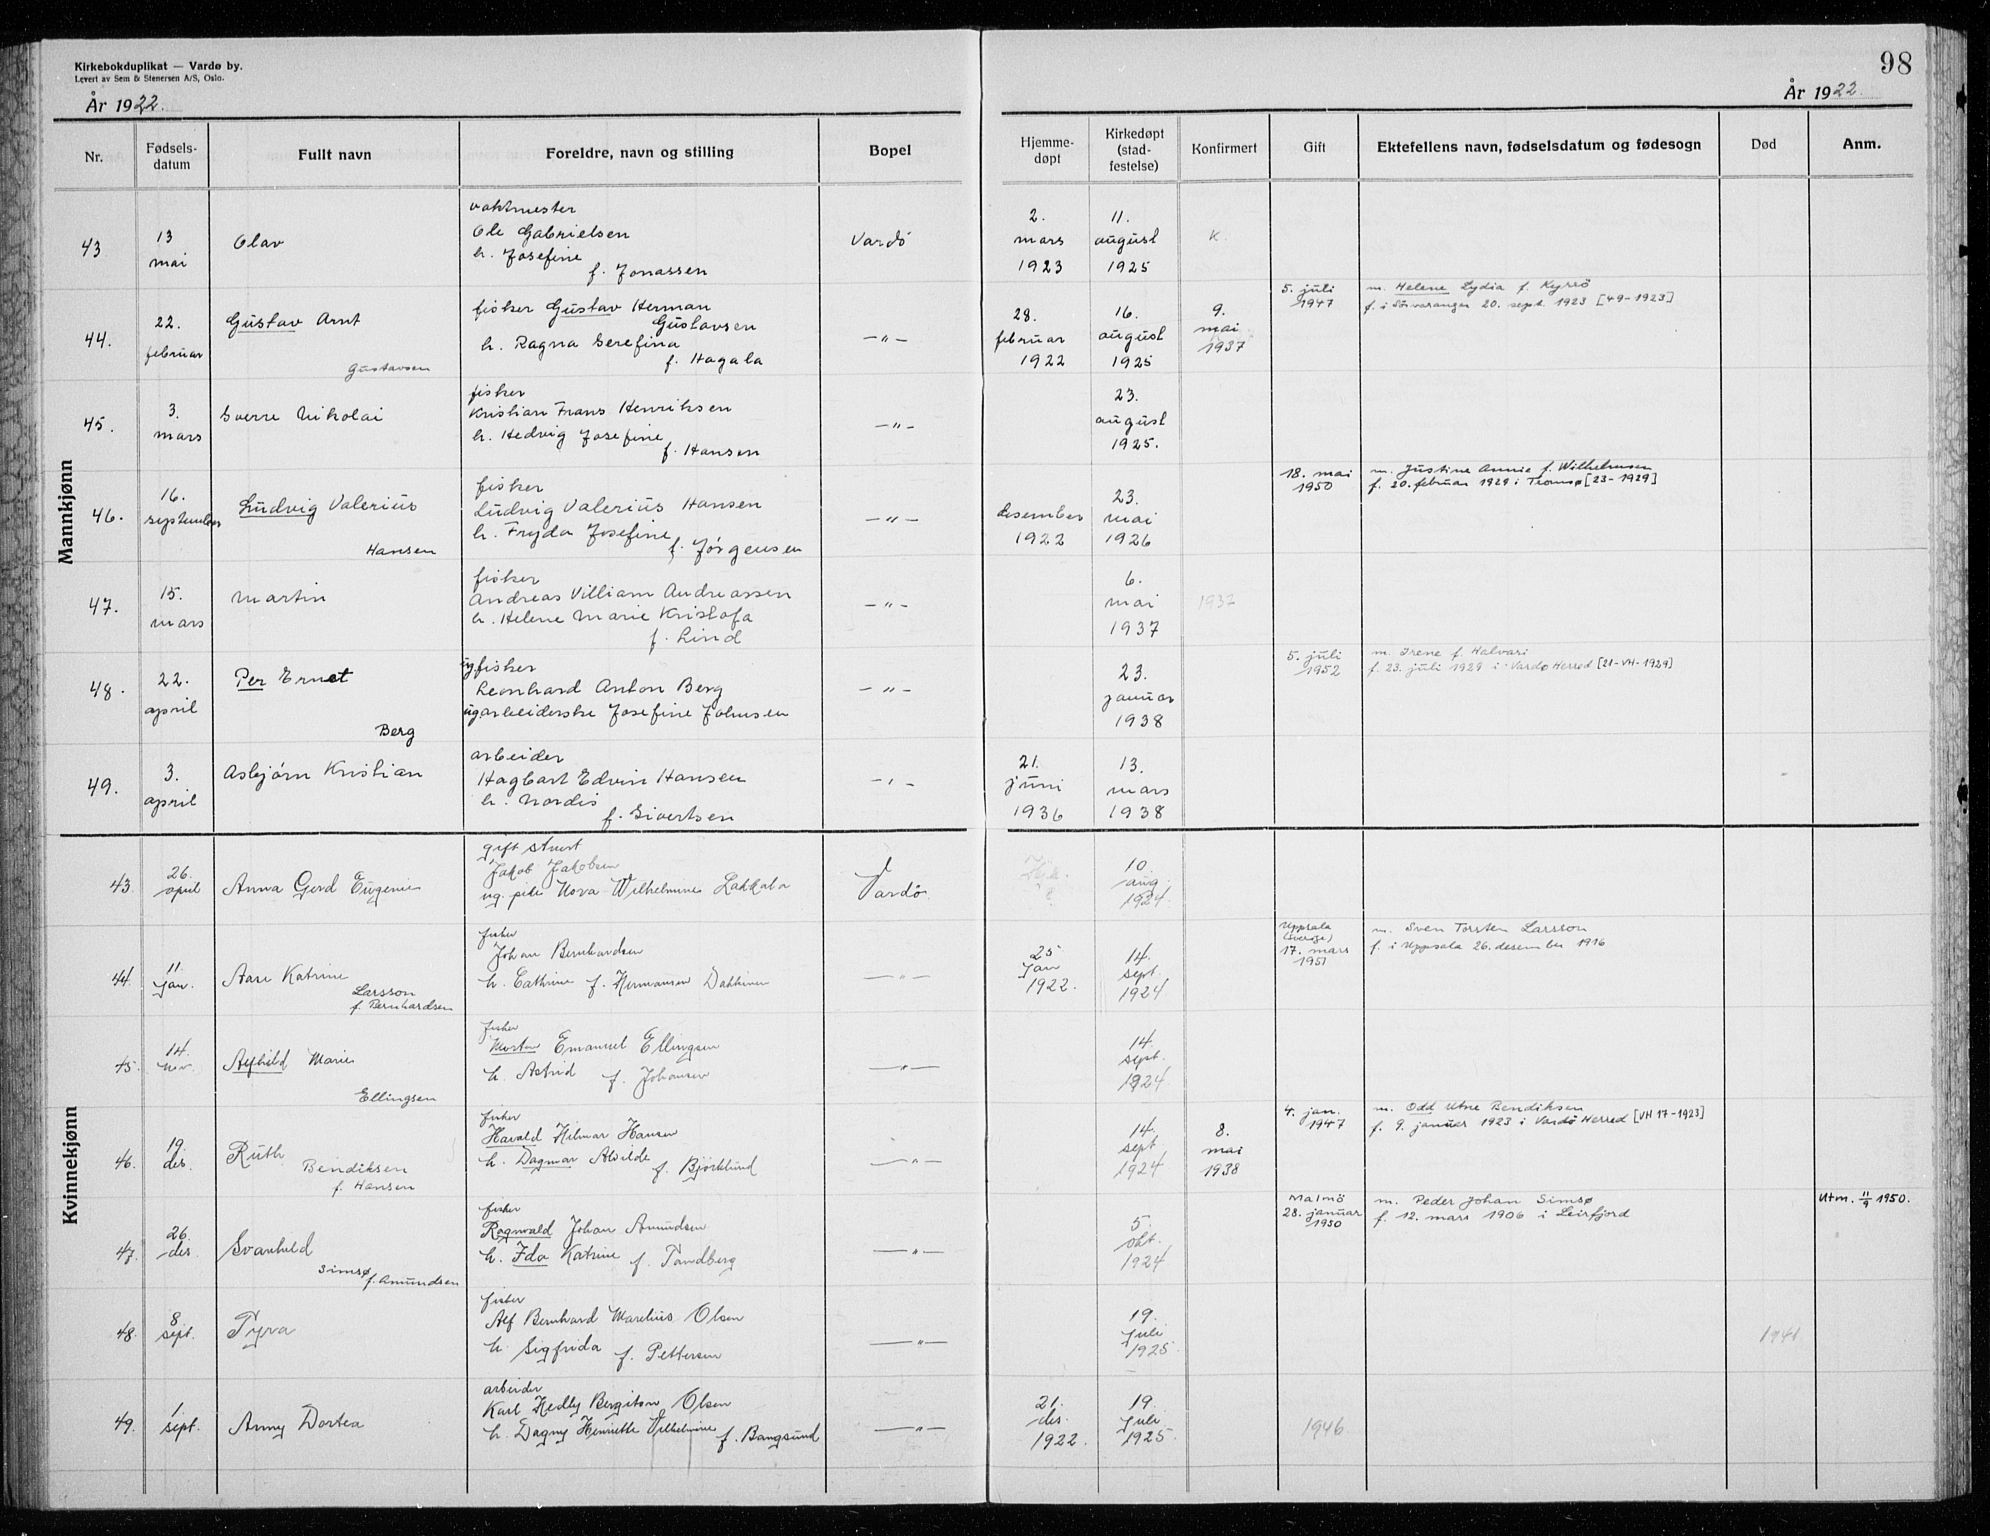 Kirkebokduplikat — Vardø by.
Levert av Sem & Stenersen A/S, Oslo.
98
År 1922.
År 1922.
Nr.
Fødsels-
datum
Fullt navn
Foreldre, navn og stilling
Bopel
Hjemme-
døpt
Kirkedøpt
(stad-
festelse)
Konfirmert
Gift
Ektefellens navn, fødselsdatum og fødesogn
Død
Anm.
Mannkjønn
43
13
mai
Olav
vaktmester
Ole Gabrielsen
h. Josefine
f. Jonassen
Vardö
2.
mars
1923
11.
august
1925
K.
44.
22.
februar
Gustav Arnt
Gustavsen
fisker Gustav Herman
Gustavsen
h. Ragna Serefina
f. Hagala
—"—
28.
februar
1922
16.
august
1925
9.
mai
1937
5. juli
1947
m. Helene Lydia f. Kyrrö
f. i Sörvaranger 20. sept. 1923 [49-1923]
45.
3.
mars
Sverre Nikolai
fisker
Kristian Frans Henriksen
h. Hedvig Josefine
f. Hansen
—"—
23.
august
1925.
46.
16.
september
Ludvig Valerius
Hansen
fisker
Ludvig Valerius Hansen
h. Fryda Josefine
f. Jörgensen
—"—
desember
1922
23.
mai
1926
18. mai
1950
m. Justine Annie f. Wilhelmsen
f. 20. februar 1929 i Tromsø [23-1929]
47.
15.
mars
Martin
fisker
Andreas Villiam Andreassen
h. Helene Marie Kristofa
f. Lind
—"—
6.
mai
1937
1937
48.
22.
april
Per Ernst
Berg
ug. fisker
Leonhard Anton Berg
ug arbeiderske Josefine Johnsen
—"—
23.
januar
1938
5. juli
1952
m. Irene f. Halvari
f. 23. juli 1929 i Vardø Herred [21-VH-1929]
49.
3.
april
Asbjörn Kristian
arbeider
Hagbart Edvin Hansen
h. Nordis
f. Sivertsen
—"—
21.
juni
1936
13.
mars
1938
Kvinnekjønn
43.
26.
april
Anna Gerd Eugenie
gift
Jakob Jakobsen
ug. pike Nora Wilhelmine Lakkala
Vardö.
10.
aug.
1924.
44.
11.
Jan.
Aase Katrine
Larsson
f. Bernhardsen
fisker
Johan Bernhardsen
h. Cathrine f. Hermansen
—"—
25
Jan
1922.
14.
sept.
1924
Uppsala
(Sverige)
17. mars
1951
m. Sven Torsten Larsson
f. i Uppsala 26. desember 1916
45.
14.
nov.
Alfhild Marie
Ellingsen
fisker
Morten Emanuel Ellingsen
h. Astrid f. Johansen
—"—
14.
sept.
1924
46.
19.
des.
Ruth
Bendiksen
f. Hansen
fisker
Harald Hilmar Hansen
h. Dagmar Alvilde f. Björklund
—"—
14.
sept
1924
8.
mai
1938
4. jan.
1947
m. Odd Utne Bendiksen
f. 9. januar 1923 i Vardö Herred [VH 17-1923]
47.
26.
des.
Svanhild
Simsø
f. Amundsen
fisker
Ragnvald Johan Amundsen
h. Ida Katrine f. Tandberg
—"—
5.
okt.
1924
Malmö
28. januar
1950
m. Peder Johan Simsø
f. 12. mars 1906 i Leirfjord
Utm. 11/9 1950.
48.
8
sept.
Tyra
fisker
Alf Bernhard Marelius Olsen
h. Sigfrida f. Pettersen
—"—
19.
Juli
1925.
1941
49.
1.
sept.
Anny Dortea
arbeider
Karl Hedly Bergiton Olsen
h. Dagny Henriette Vilhelmine f. Bangsund
—"—
21.
des.
1922.
19.
Juli
1925.
1946